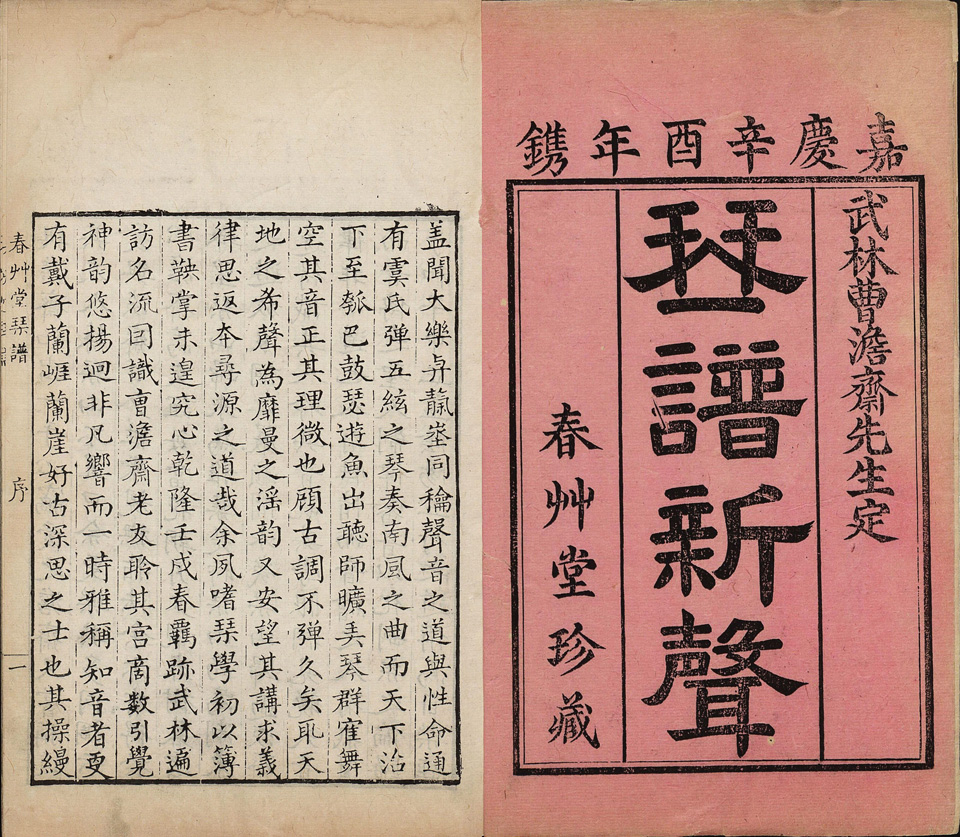 嘉慶辛酉年鐫
武林曹澹齋先生定
琴譜新聲
春艸堂珍藏
盖聞大樂靝埊同龢聲音之道與性命通
有虞氏弹五絃之琴奏南風之曲而天下治
下至瓠巴鼓瑟遊魚出聽師曠奏琴群寉舞
空其音正其理微也顧古調不彈久矣耴天
地之希聲為靡曼之滛韵又安望其講求義
律思返本尋源之道哉余夙嗜琹學初以簿
書鞅掌未遑究心乾隆壬戌春羈跡武林遍
訪名流囙識曺澹齋老友聆其宫商數引覺
神韵悠揚迥非凡響而一時雅稱知音者更
有戴子蘭崕蘭崖好古深思之士也其操縵
春艸堂琹譜 序 一